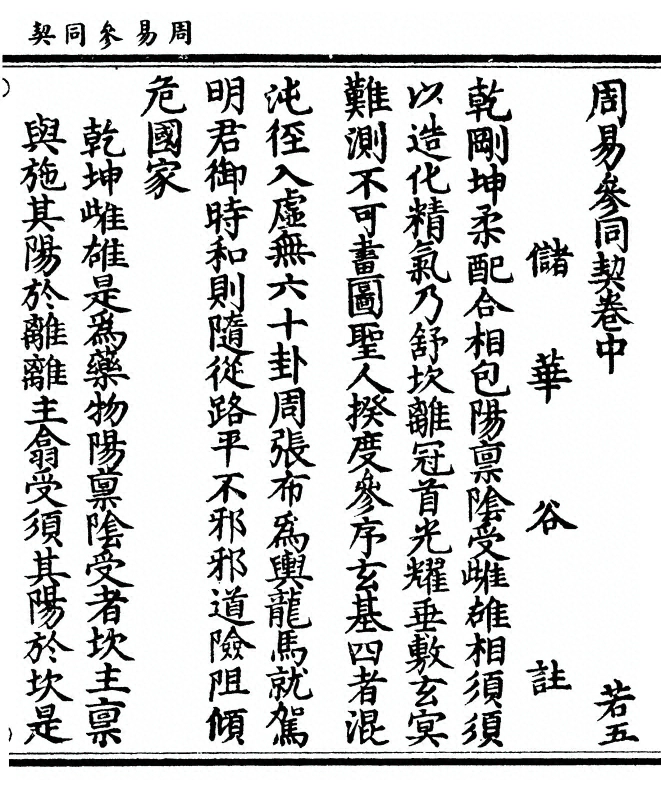 周易參同契
周易參同契卷中 若五
儲華谷註
乾剛坤柔配合相包陽稟陰受雌雄相須須
以造化精氣乃舒坎離冠首光耀垂敷玄冥
難測不可畫圖聖人揆度參序玄基四者混
沌徑入虛無六十卦周張布為輿龍馬就駕
明君御時和則隨從路平不邪邪道險阻傾
危國家
乾坤雌雄是為藥物陽稟陰受者坎主稟
與施其陽於離離主翕受須其陽於坎是